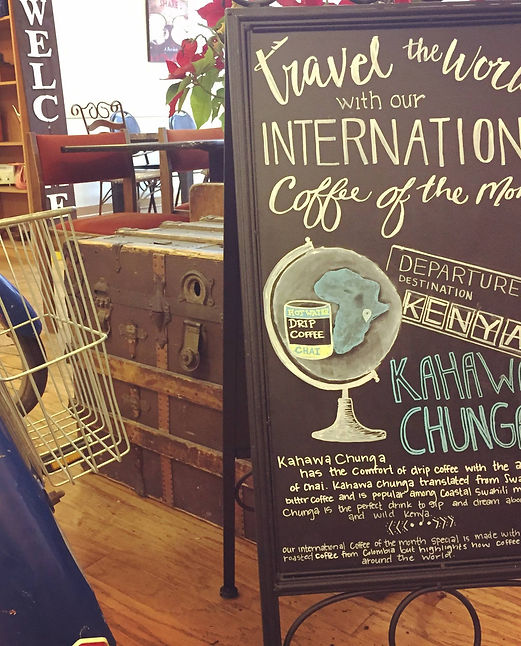 WELC
E
Travel the Worl
with our
INTERNATION
Coffee of the Mon
DEPARTURE
DESTINATION
KENYA
HOT WATER
DRIP
COFFEE
CHAI
KAHAWA
CHUNGA
Kahawa Chunga
has the comfort of drip coffee with the a
of chai. Kahawa Chunga translated from Swa
bitter coffee and is popular among Coastal Swahili m
Chunga is the perfect drink to sip and dream abou
and wild Kenya.
our international coffee of the month special is made with
roasted coffee from Colombia but highlights how coffee
around the world.